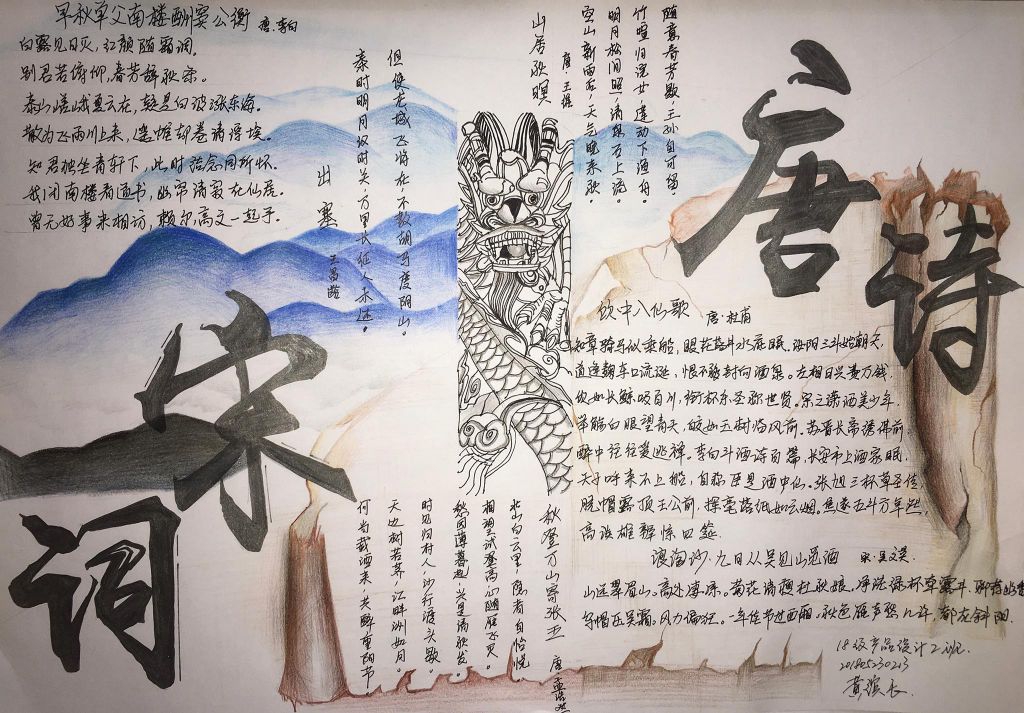 早秋单父南楼酬窦公衡 唐·李白
白露见日灭,红颜随霜凋。
别君若俯仰,春芳辞秋条。
泰山嵯峨夏云在,疑是白波涨东海。
散为飞雨川上来,遥帷却卷清浮埃。
知君独坐青轩下,此时结念同所怀。
我闭南楼看道书,幽帘清寂在仙居。
曾无好事来相访,赖尔高文一起予。
出塞
王昌龄
秦时明月汉时关,万里长征人未还。
但使龙城飞将在,不教胡马度阴山。
山居秋暝
唐·王维
空山新雨后,天气晚来秋。
明月松间照,清泉石上流。
竹喧归浣女,莲动下渔舟。
随意春芳歇,王孙自可留。
唐诗
宋词
饮中八仙歌 唐·杜甫
知章骑马似乘船,眼花落井水底眠。汝阳三斗始朝天,
道逢麴车口流涎,恨不移封向酒泉。左相日兴费万钱,
饮如长鲸吸百川,衔杯乐圣称世贤。宗之潇洒美少年,
举觞白眼望青天,皎如玉树临风前。苏晋长斋绣佛前,
醉中往往爱逃禅。李白斗酒诗百篇,长安市上酒家眠,
天子呼来不上船,自称臣是酒中仙。张旭三杯草圣传,
脱帽露顶王公前,挥毫落纸如云烟。焦遂五斗方卓然,
高谈雄辩惊四筵
浪淘沙·九日从吴见山觅酒 宋·吴文英
山远翠眉山。高处凄凉。菊花清瘦杜秋娘。净洗绿杯牵露井,聊荐幽香
乌帽压吴霜。风力偏狂。一年佳节过西厢。秋色雁声愁几许,都在斜阳
秋登万山寄张五
唐·孟浩然
北山白云里,隐者自怡悦。
相望试登高,心随雁飞灭。
愁因薄暮起,兴是清秋发。
时见归村人,沙行渡头歇
天边树若荠,江畔洲如月。
何当载酒来,共醉重阳节。
18级产品设计2班
201805230213
黄滨长